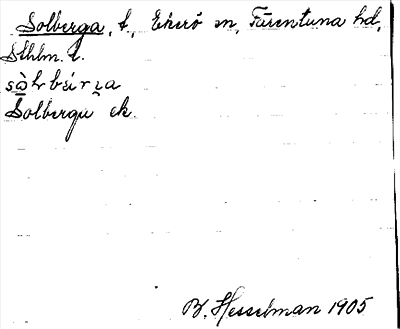 Solberga, t., Ekerö sn, Färentuna hd,
Sthlm. l.
Solberga ek.
B. Hesselman 1905